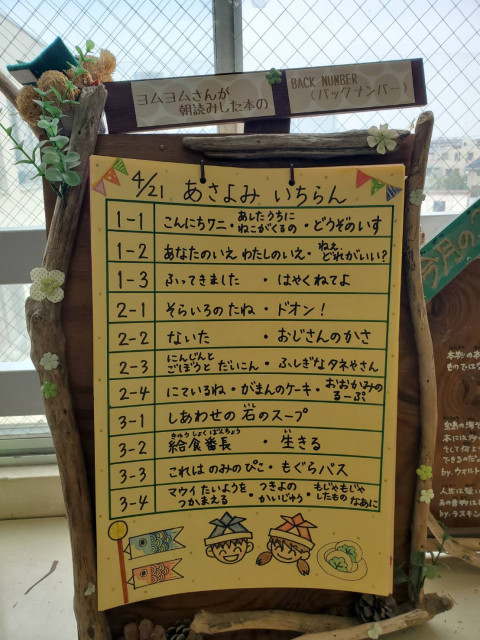 ヨムヨムさんが
朝読みした本の
BACK NUMBER
(バックナンバー)
4/21 あさよみ いちらん
1-1 こんにちワニ・あしたうちに ねこがくるの・どうぞのいす
1-2 あなたのいえ わたしのいえ・ねえ、どれがいい?
1-3 ふってきました ・はやくねてよ
2-1 そらいろのたね・ドオン!
2-2 ないた ・おじさんのかさ
2-3 にんじんと ごぼうと だいこん・ふしぎなタネやさん
2-4 にているね・がまんのケーキ・おおかみの るーぷ
3-1 しあわせの石のスープ
いし
3-2 給食番長 ・生きる
きゅうしょくばんちょう い
3-3 これは のみのぴこ・もぐらバス
3-4 マウイ たいようを つかまえる・つきよの かいじゅう・もじゃもじゃ したもの なあに
今月の
by.ウォルト
by.ラスキン